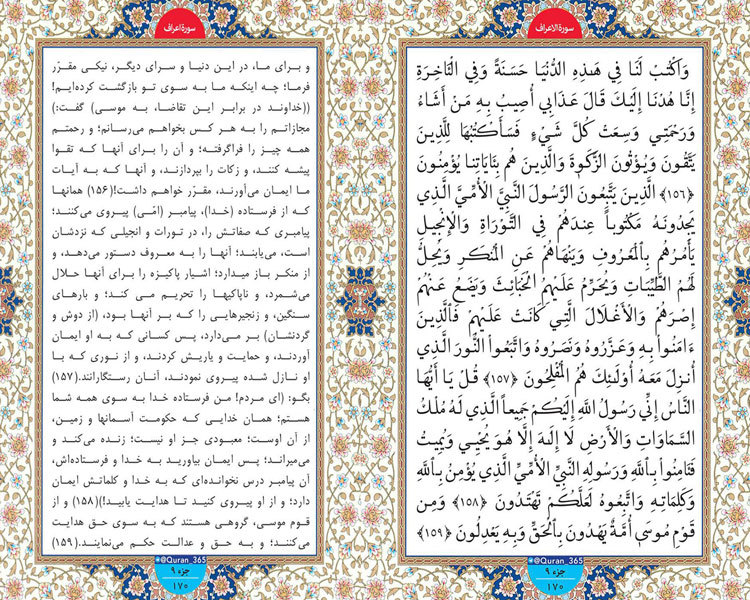 سورة الاعراف
وَاكْتُبْ لَنَا فِي هَـٰذِهِ الدُّنْيَا حَسَنَةً وَفِي الْآخِرَةِ
إِنَّا هُدْنَا إِلَيْكَ قَالَ عَذَابِي أُصِيبُ بِهِ مَنْ أَشَاءُ
وَرَحْمَتِي وَسِعَتْ كُلَّ شَيْءٍ فَسَأَكْتُبُهَا لِلَّذِينَ
يَتَّقُونَ وَيُؤْتُونَ الزَّكَوٰةَ وَالَّذِينَ هُم بِـَٔايَاتِنَا يُؤْمِنُونَ
﴿١٥٦﴾ الَّذِينَ يَتَّبِعُونَ الرَّسُولَ النَّبِيَّ الْأُمِّيَّ الَّذِي
يَجِدُونَهُ مَكْتُوباً عِندَهُمْ فِي التَّوْرَاةِ وَالْإِنْجِيلِ
يَأْمُرُهُم بِالْمَعْرُوفِ وَيَنْهَاهُمْ عَنِ الْمُنكَرِ وَيُحِلُّ
لَهُمُ الطَّيِّبَاتِ وَيُحَرِّمُ عَلَيْهِمُ الْخَبَائِثَ وَيَضَعُ عَنْهُمْ
إِصْرَهُمْ وَالْأَغْلَالَ الَّتِي كَانَتْ عَلَيْهِمْ فَالَّذِينَ
ءَامَنُوا بِهِ وَعَزَّرُوهُ وَنَصَرُوهُ وَاتَّبَعُوا النُّورَ الَّذِي
أُنزِلَ مَعَهُ أُولَـٰئِكَ هُمُ الْمُفْلِحُونَ ﴿١٥٧﴾ قُلْ يَا أَيُّهَا
النَّاسُ إِنِّي رَسُولُ اللَّهِ إِلَيْكُمْ جَمِيعاً الَّذِي لَهُ مُلْكُ
السَّمَاوَاتِ وَالْأَرْضِ لَا إِلَهَ إِلَّا هُوَ يُحْيِي وَيُمِيتُ
فَآمِنُوا بِاللَّهِ وَرَسُولِهِ النَّبِيِّ الْأُمِّيِّ الَّذِي يُؤْمِنُ بِاللَّهِ
وَكَلِمَاتِهِ وَاتَّبِعُوهُ لَعَلَّكُمْ تَهْتَدُونَ ﴿١٥٨﴾ وَمِن
قَوْمِ مُوسَىٰ أُمَّةٌ يَهْدُونَ بِالْحَقِّ وَبِهِ يَعْدِلُونَ ﴿١٥٩﴾
@Quran_365
جزء ۹
۱۷۰
سورة اعراف
و برای ما، در این دنیا و سرای دیگر، نیکی مقرّر
فرما؛ چه اینکه ما به سوی تو بازگشت کرده‌ایم!
((خداوند در برابر این تقاضا، به موسی) گفت:)
مجازاتم را به هر کس بخواهم می‌رسانم؛ و رحمتم
همه چیز را فراگرفته؛ و آن را برای آنها که تقوا
پیشه کنند، و زکات را بپردازند، و آنها که به آیات
ما ایمان می‌آورند، مقرّر خواهم داشت!(۱۵۶) همانها
که از فرستاده (خدا)، پیامبر (امّی) پیروی می‌کنند؛
پیامبری که صفاتش را، در تورات و انجیلی که نزدشان
است، می‌یابند؛ آنها را به معروف دستور می‌دهد، و
از منکر باز میدارد؛ اشیار پاکیزه را برای آنها حلال
می‌شمرد، و ناپاکیها را تحریم می کند؛ و بارهای
سنگین، و زنجیرهایی را که بر آنها بود، (از دوش و
گردنشان) بر می‌دارد، پس کسانی که به او ایمان
آوردند، و حمایت و یاریش کردند، و از نوری که با
او نازل شده پیروی نمودند، آنان رستگارانند.(۱۵۷)
بگو: (ای مردم! من فرستاده خدا به سوی همه شما
هستم؛ همان خدایی که حکومت آسمانها و زمین،
از آن اوست؛ معبودی جز او نیست؛ زنده می‌کند و
می‌میراند؛ پس ایمان بیاورید به خدا و فرستاده‌اش،
آن پیامبر درس نخوانده‌ای که به خدا و کلماتش ایمان
دارد؛ و از او پیروی کنید تا هدایت یابید!)(۱۵۸) و از
قوم موسی، گروهی هستند که به سوی حق هدایت
می‌کنند؛ و به حق و عدالت حکم می‌نمایند.(۱۵۹)
@Quran_365
جزء ۹
۱۷۰